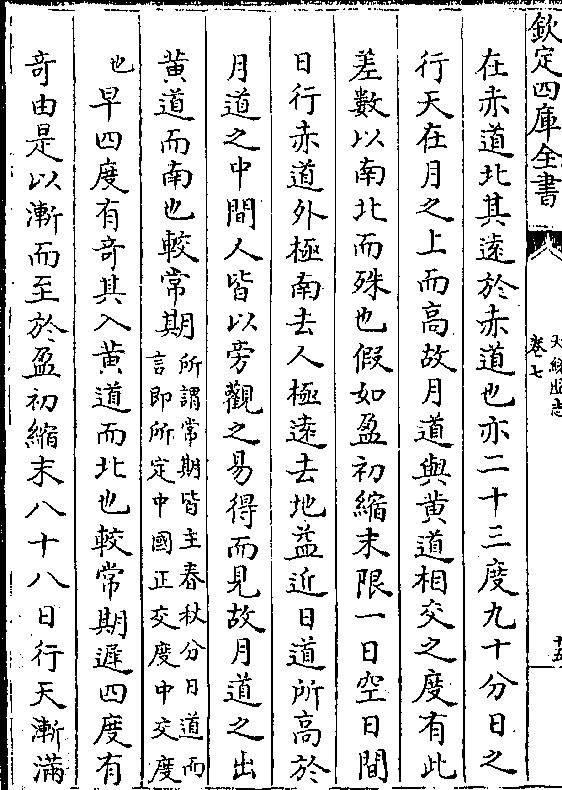 欽定四庫全書
卷七
在赤道北其遠於赤道也亦二十三度九十分日之
行天在月之上而高故月道與黃道相交之度有此
差數以南北而殊也假如盈初縮末限一日空日間
日行赤道外極南去人極遠去地益近日道所高於
月道之中間人皆以旁觀之易得而見故月道之出
黃道而南也較常期所謂常期皆主春秋分日道而
言即所定中國正交度中交度
也早四度有奇其入黃道而北也較常期遲四度有
奇由是以漸而至於盈初縮末八十八日行天漸滿